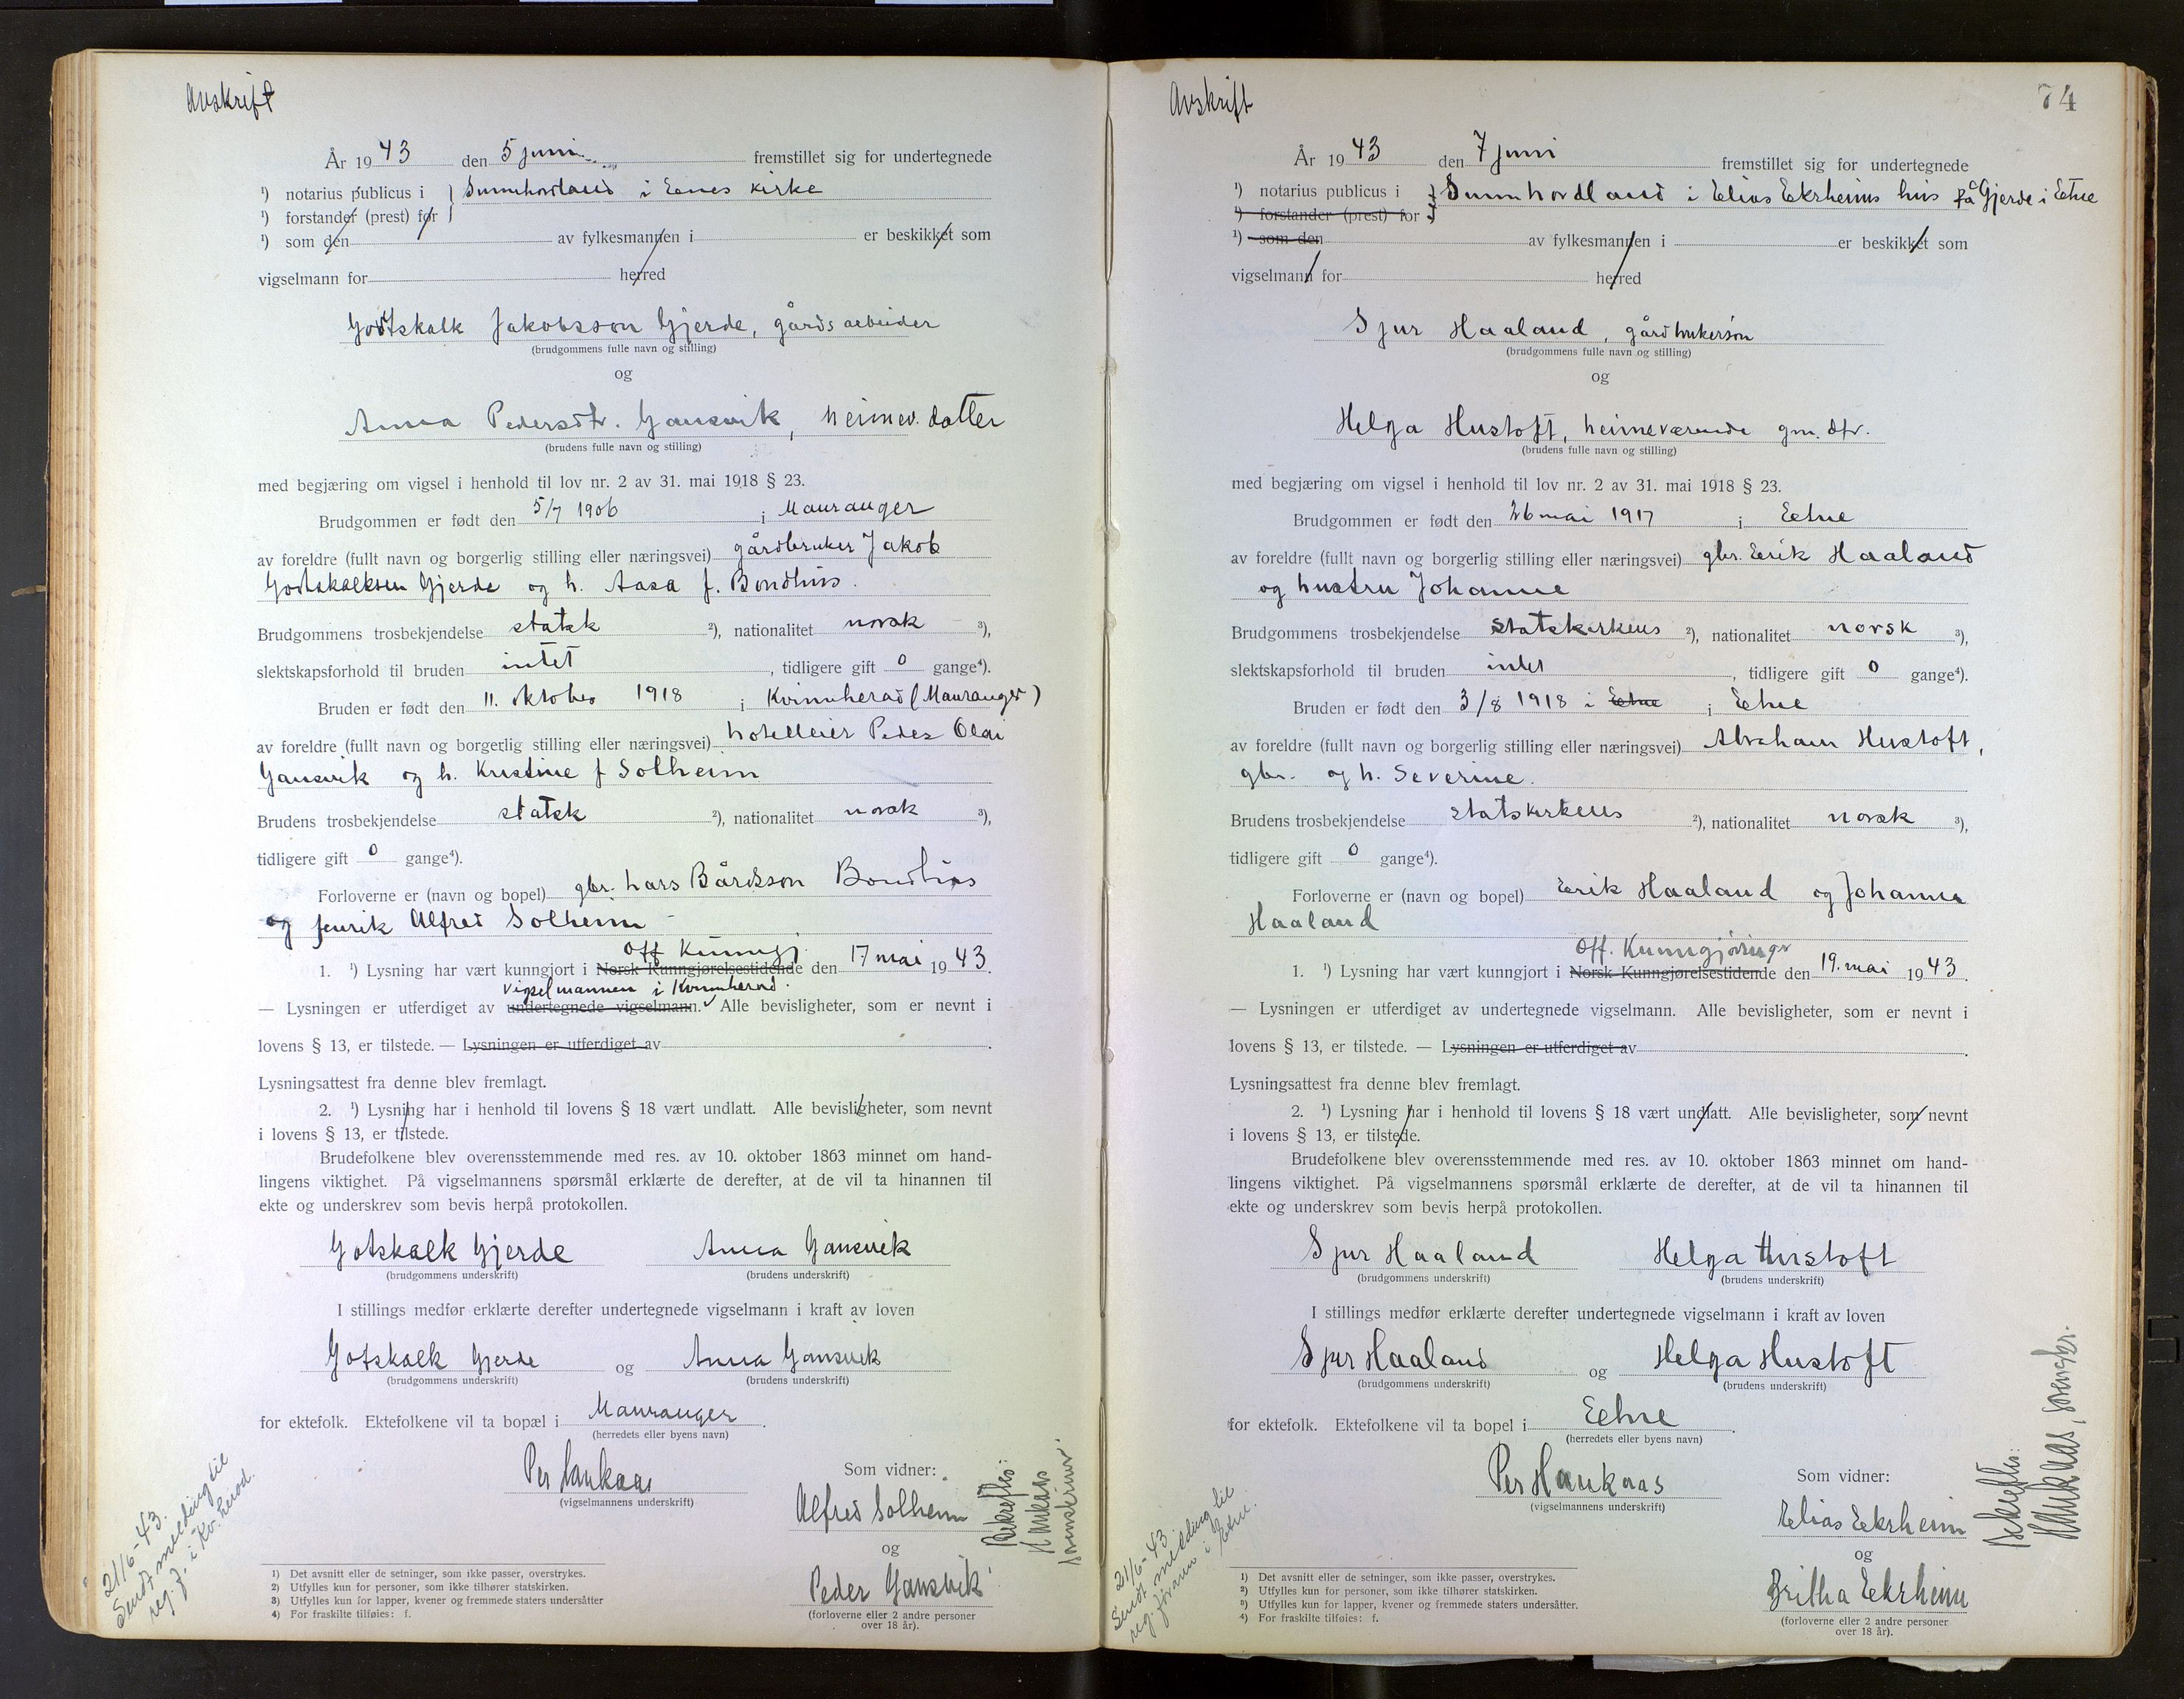 Avskrift
År 1943 den 5 juni fremstillet sig for undertegnede
¹) notarius publicus i } Sunnhordland i Eenes kirke
¹) forstander (prest) for }
¹) som den av fylkesmannen i er beskikket som
vigselmann for herred
Gottskalk Jakobsson Gjerde, gårdsarbeider
(brudgommens fulle navn og stilling)
og
Anna Pedersdtr. Gansvik, heimev. datter
(brudens fulle navn og stilling)
med begjæring om vigsel i henhold til lov nr. 2 av 31. mai 1918 § 23.
Brudgommen er født den 5/7 1906 i Mauranger
av foreldre (fullt navn og borgerlig stilling eller næringsvei) gårdbruker Jakob
Gotskalksen Gjerde og h. Aasa f. Bondhus.
Brudgommens trosbekjendelse statsk ²), nationalitet norsk ³),
slektskapsforhold til bruden intet, tidligere gift 0 gange⁴).
Bruden er født den 11. oktober 1918 i Kvinnherad (Mauranger)
av foreldre (fullt navn og borgerlig stilling eller næringsvei) hotelleier Peder Olai
Gansvik og h. Kristine f Solheim
Brudens trosbekjendelse statsk ²), nationalitet norsk ³),
tidligere gift 0 gange⁴).
Forloverne er (navn og bopel) gbr. Lars Bårdsson Bondhus
og fenrik Alfred Solheim
off Kunngj.
1. ¹) Lysning har vært kunngjort i Norsk Kunngjørelsestidende den 17 mai 1943.
vigselmannen i Kvinnherad.
— Lysningen er utferdiget av undertegnede vigselmann. Alle bevisligheter, som er nevnt i
lovens § 13, er tilstede. — Lysningen er utferdiget av .
Lysningsattest fra denne blev fremlagt.
2. ¹) Lysning har i henhold til lovens § 18 vært undlatt. Alle bevisligheter, som nevnt
i lovens § 13, er tilstede.
Brudefolkene blev overensstemmende med res. av 10. oktober 1863 minnet om hand-
lingens viktighet. På vigselmannens spørsmål erklærte de derefter, at de vil ta hinannen til
ekte og underskrev som bevis herpå protokollen.
Gotskalk Gjerde Anna Gansvik
(brudgommens underskrift) (brudens underskrift)
I stillings medfør erklærte derefter undertegnede vigselmann i kraft av loven
Gotskalk Gjerde og Anna Gansvik
(brudgommens underskrift) (brudens underskrift)
for ektefolk. Ektefolkene vil ta bopæl i Mauranger.
(herredets eller byens navn)
Per Haukaas
(vigselmannens underskrift)
Som vidner:
Alfred Solheim
og
Peder Gansvik
(forloverne eller 2 andre personer
over 18 år).
Bekreftes:
Haukaas
sorenskriver
21/6-43.
Sendt melding til
reg. f. i Kv.herad.
1) Det avsnitt eller de setninger, som ikke passer, overstrykes.
2) Utfylles kun for personer, som ikke tilhører statskirken.
3) Utfylles kun for lapper, kvener og fremmede staters undersåtter
4) For fraskilte tilføies: f.
Avskrift
74
År 1943 den 7 juni fremstillet sig for undertegnede
¹) notarius publicus i } Sunnhordland i Elias Eekrheims hus på Gjerde i Etne
¹) forstander (prest) for }
¹) som den av fylkesmannen i er beskikket som
vigselmann for herred
Sjur Haaland, gårdbrukersøn
(brudgommens fulle navn og stilling)
og
Helga Hustoft, heimeværende gm. dtr.
(brudens fulle navn og stilling)
med begjæring om vigsel i henhold til lov nr. 2 av 31. mai 1918 § 23.
Brudgommen er født den 26 mai 1917 i Etne
av foreldre (fullt navn og borgerlig stilling eller næringsvei) gbr. Erik Haaland
og hustru Johanne
Brudgommens trosbekjendelse statskirkens ²), nationalitet norsk ³),
slektskapsforhold til bruden intet, tidligere gift 0 gange⁴).
Bruden er født den 3/8 1918 i Etne i Etne
av foreldre (fullt navn og borgerlig stilling eller næringsvei) Abraham Hustoft,
gbr. og h. Severine.
Brudens trosbekjendelse statskirkens ²), nationalitet norsk ³),
tidligere gift 0 gange⁴).
Forloverne er (navn og bopel) Erik Haaland og Johanna
Haaland
Off. Kunngjøringer
1. ¹) Lysning har vært kunngjort i Norsk Kunngjørelsestidende den 19. mai 1943.
— Lysningen er utferdiget av undertegnede vigselmann. Alle bevisligheter, som er nevnt i
lovens § 13, er tilstede. — Lysningen er utferdiget av .
Lysningsattest fra denne blev fremlagt.
2. ¹) Lysning har i henhold til lovens § 18 vært undlatt. Alle bevisligheter, som nevnt
i lovens § 13, er tilstede.
Brudefolkene blev overensstemmende med res. av 10. oktober 1863 minnet om hand-
lingens viktighet. På vigselmannens spørsmål erklærte de derefter, at de vil ta hinannen til
ekte og underskrev som bevis herpå protokollen.
Sjur Haaland Helga Hustoft
(brudgommens underskrift) (brudens underskrift)
I stillings medfør erklærte derefter undertegnede vigselmann i kraft av loven
Sjur Haaland og Helga Hustoft
(brudgommens underskrift) (brudens underskrift)
for ektefolk. Ektefolkene vil ta bopel i Etne.
(herredets eller byens navn)
Per Haukaas
(vigselmannens underskrift)
Som vidner:
Elias Eekrheim
og
Britha Eekrheim
(forloverne eller 2 andre personer
over 18 år).
Bekreftes:
Haukaas, sorenskr.
21/6-43.
Sendt melding til
reg. føraren i Etne.
1) Det avsnitt eller de setninger, som ikke passer, overstrykes.
2) Utfylles kun for personer, som ikke tilhører statskirken.
3) Utfylles kun for lapper, kvener og fremmede staters undersåtter.
4) For fraskilte tilføies: f.